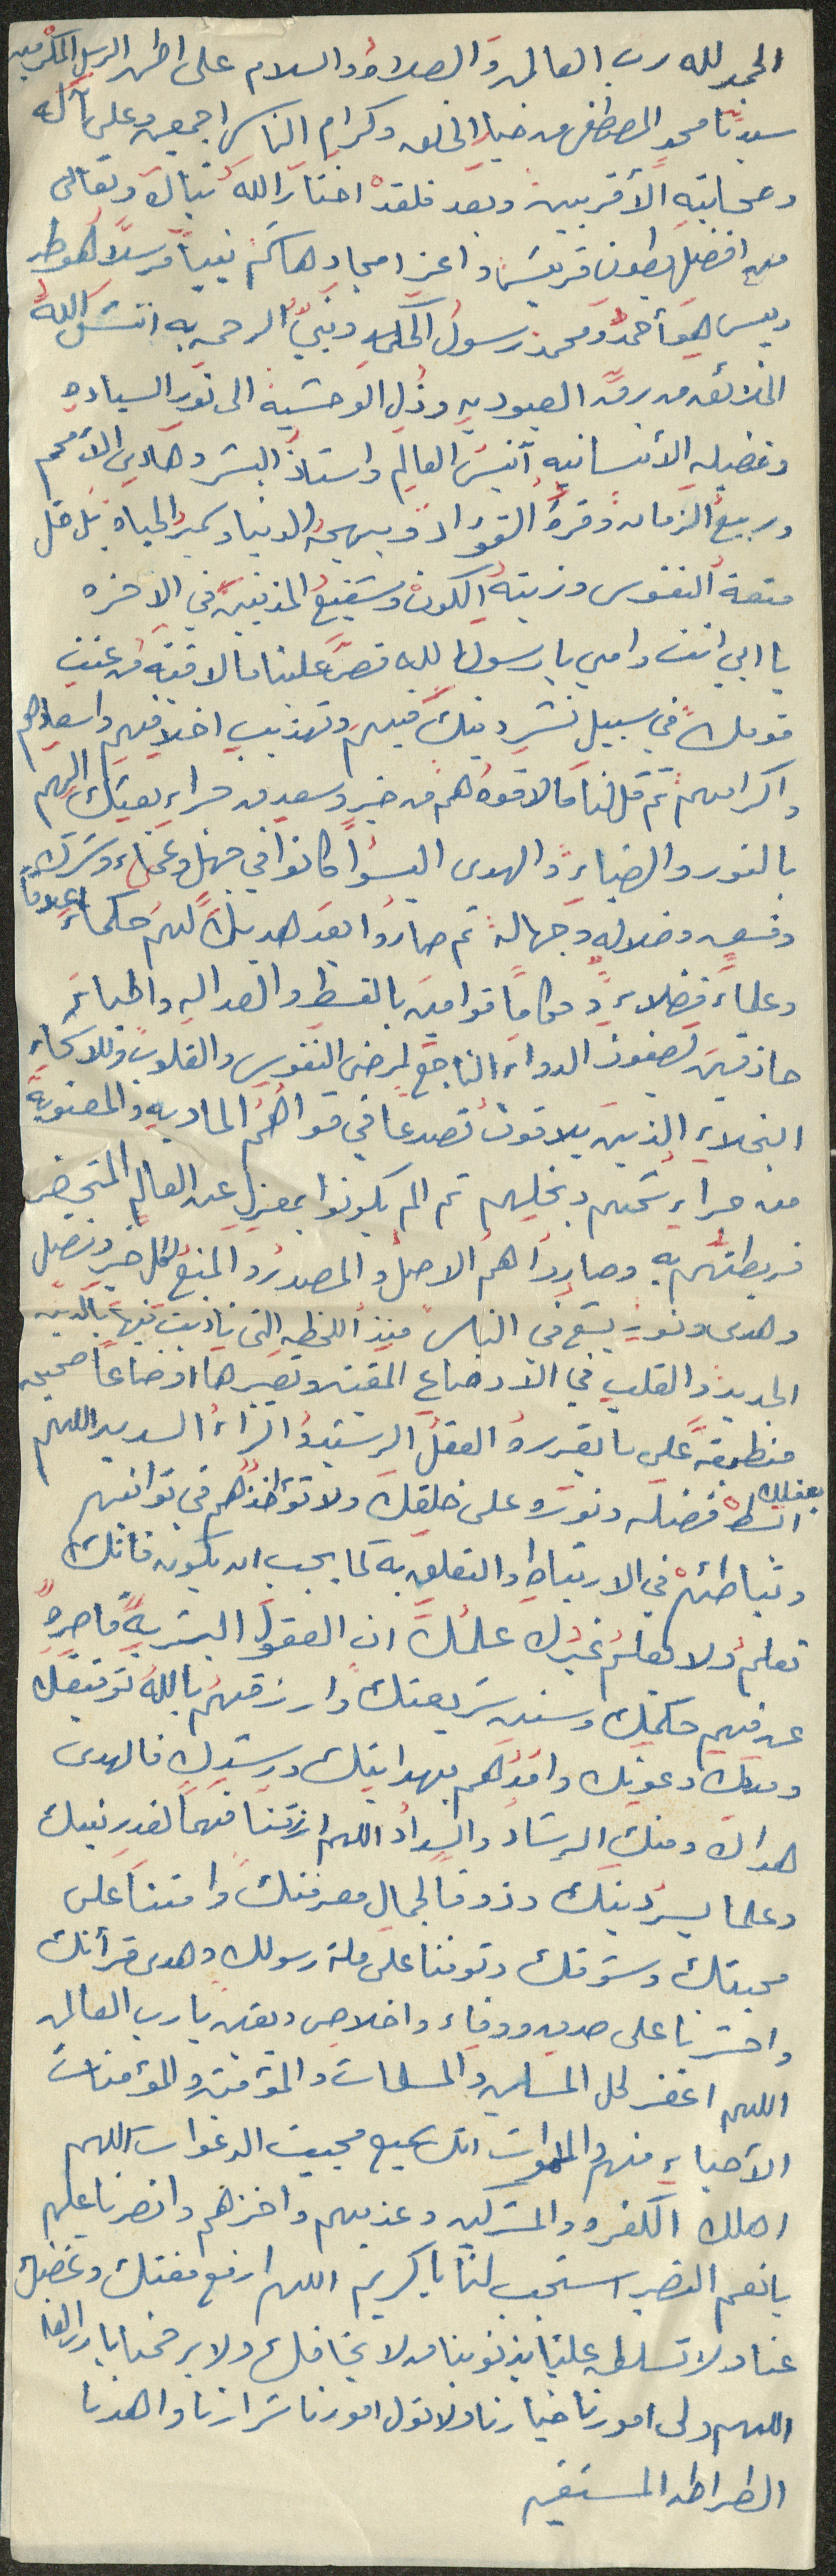 الحمد لله رب العالمين والصلاة والسلام على اطهر الرسل المكرمين
سيدنا محمد المصطفى من خيار الخلق وكرام الناس اجمعين وعلى آله
وصحابته الأقربين وبعد فلقد اختار الله تبارك وتعالى
من افضل بطون قريش واعز امجاد هاشم نبياً مرسلاً هو طه
ويس هو أحمد ومحمد رسول الحكمة ونبي الرحمة به انتشل الله
الخلائق من برقة العبودية وذل الوحشية الى نور السيادة
وفضيلة الأنسانية أنيس العالم واستاذ البشر وهادي الأمم
وربيع الزمان وقرة الفؤاد وبهجة الدنيا وسمير الحياة بل قل
متعة النفوس وزينة الكون وشفيع المذنبين في الاخره
بأبي انت وامي يا رسول الله قص علينا ما لاقيته من عنت
قومك في سبيل نشر دينك فيهم وتهذيب اخلاقهم واسعادهم
واكرامهم ثم قل لنا ما لاقوه هم من خير وسعد من جراء بعثك اليهم
بالنور والضياء والهدى اليسوا كانوا في جهل وعماء وشرك
وفسق وضلالة وجهالة ثم صاروا بعد هديك لهم حكماء اعلاماً
وعلماء فضلاء وحكاماً قوامين بالقسط والعدالة واطباء
حاذقين يصفون الدواء الناجع لمرضى النفوس والقلوب وللاشحاء
البخلاء الذين يلاقون تصدعاً في قواهم المادية والمعنوية
من جراء شحهم وبخلهم ثم الم يكونوا بمعزل عن العالم المتحضر
فربطتهم به وصاروا هم الاصل والمصدر والمنبع لكل خير وفضل
وهدى ونور يشع في الناس منذ اللحظة التي ناديت فيها بالدين
الجديد والقلب في الاوضاع المقيتة وتصييرها اوضاعا صحيحه
منطبقة على ما يقرره العقل الرشيد والرأي السديد اللهم
بفضلك ابسط فضله ونوره على خلقك ولا تؤاخذهم في توانيهم
وتباطئهم في الارتباط والتعلق به كما يجب ان يكون فانك
تعلم ولا يعلم غيرك علمك ان العقول البشرية قاصرة
عن فهم حكمتك وسنن شريعتك وارزقهم يا الله توفيقك
ومنك وعونك وامدهم بهدايتك ورشدك فالهدى
هداك ومنك الرشاد والسداد اللهم ارزقنا فهما لقدر نبيك
وعلما بسر دينك وذوقا لجمال معرفتك وامتنا على
محبتك وشوقك وتوفنا على ملة رسولك وهدى قرآنك
واحشرنا على صدق ووفاء واخلاص ويقين يا رب العالمين
اللهم اغفر لكل المسلمين والمسلمات والمؤمنين والمؤمنات
الأحياء منهم والاموات انك سميع مجيب الدعوات اللهم
اهلك الكفره والمشركين وعذبهم واخزهم وانصرنا عليهم
يا نعم النصير استجب لنا يا كريم اللهم ارفع مقتك وغضبك
عنا ولا تسلط علينا بذنوبنا من لا يخافك ولا يرحمنا يا رب العا
اللهم ولي امورنا خيارنا ولا تول امورنا شرارنا واهدنا
الطراط المستقيم